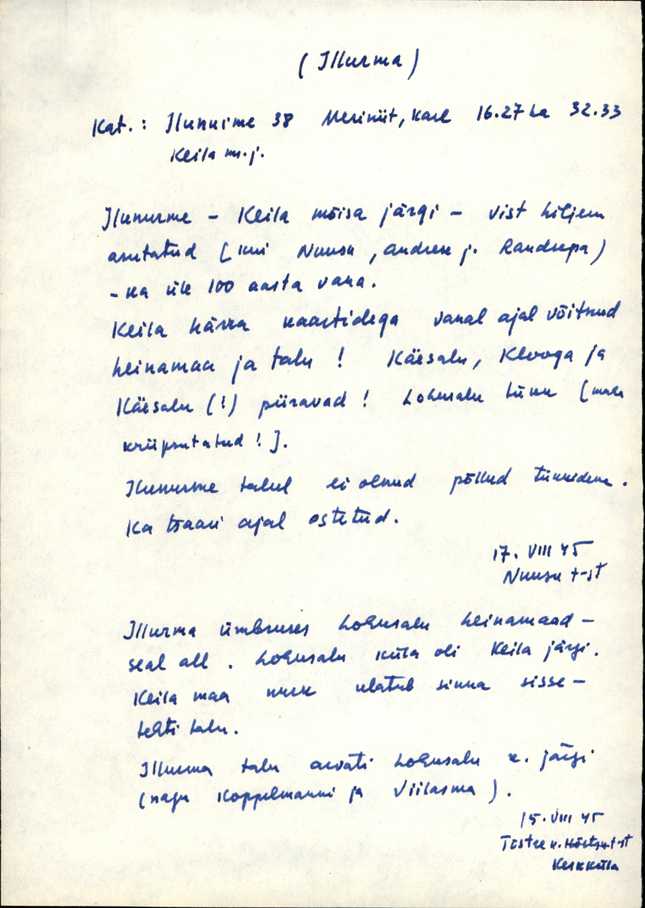 (Illurma)
Kat.: Ilunurme 38 Meriniit, Karl 16.27 ha 32.33
Keila m. j.
Ilunurme – Keila mõisa järgi – vist hiljem
asutatud (kui Nuusu, Andrese j. Randsepa)
– ka üle 100 aasta vana.
Keila härra kaartidega vanal ajal võitnud
heinamaa ja talu! Käesalu, Klooga ja
Käesalu (!) piiravad! Lohusalu
kriipsutatud!].
Ilunurme talul ei olnud põllud tünnidena.
Ka tsaari ajal ostetud.
17. VIII 45
Nuusu t-st
Illurma ümbruses Lohusalu heinamaad –
seal all. Lohusalu küla oli Keila järgi.
Keila maa nurk ulatub sinna sisse –
tehti talu.
Illurma talu arvati Lohusalu k. järgi
(nagu Koppelmanni ja Viilasma).
15. VIII 45
t-st
Keskküla